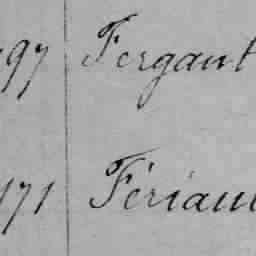 97 Fergant
171 Fériau